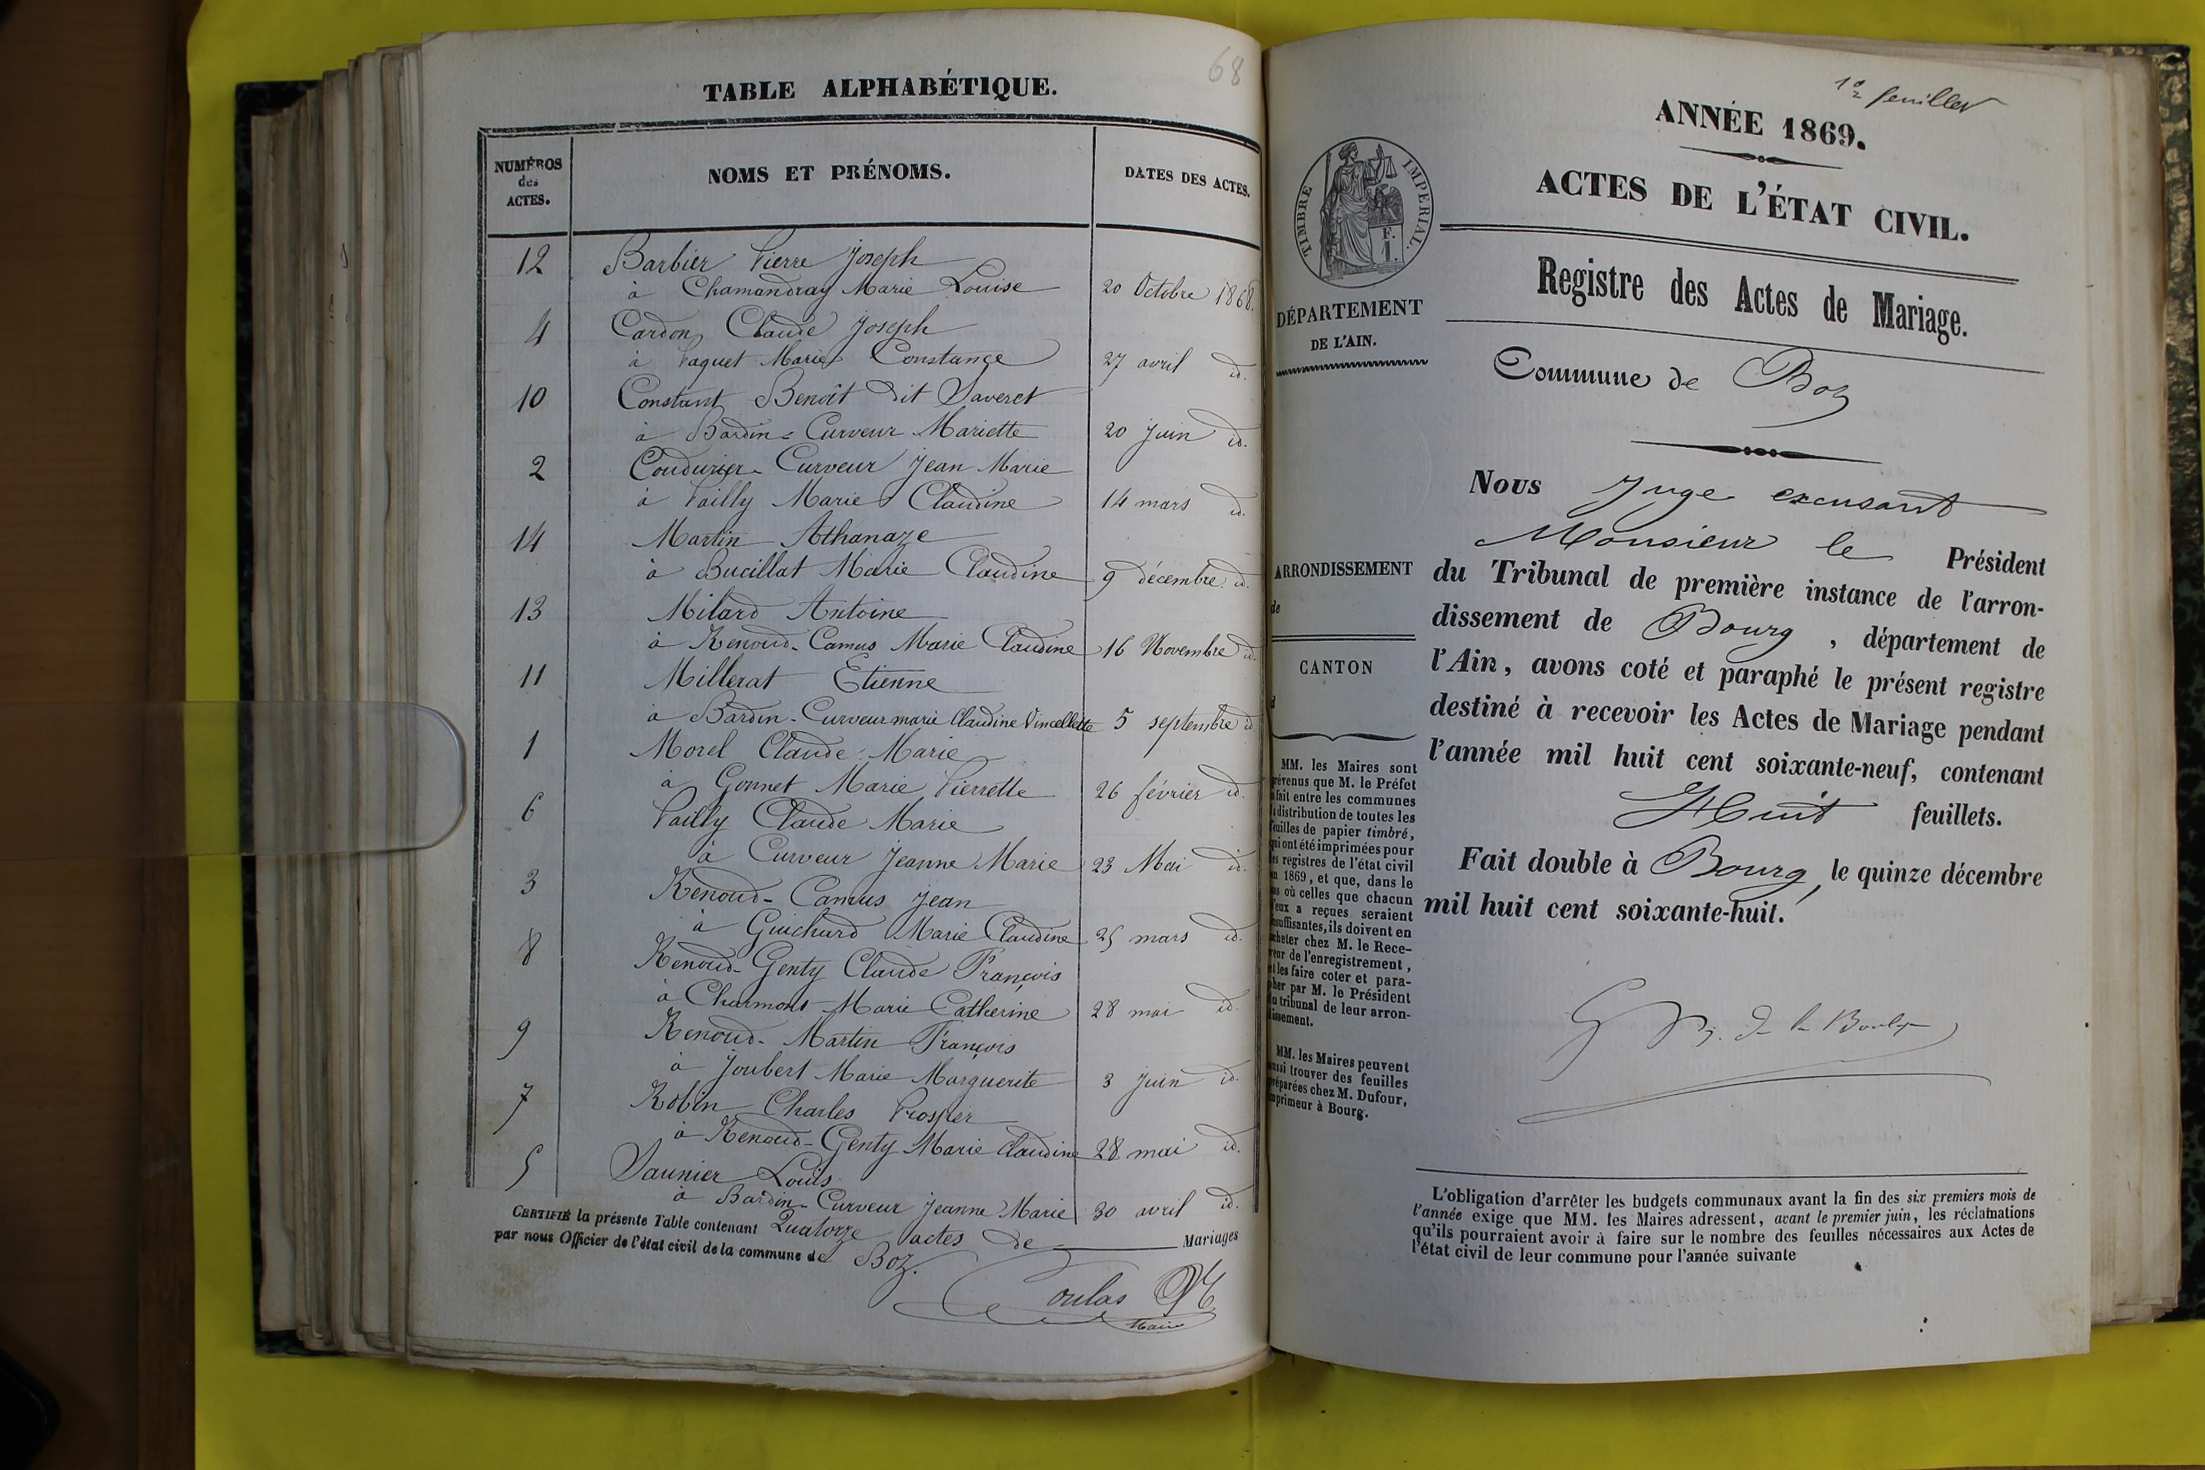 68
TABLE ALPHABÉTIQUE.
NUMÉROS des ACTES.
NOMS ET PRÉNOMS.
DATES DES ACTES.
12 Barbier Pierre Joseph
à Chamandray Marie Louise 20 Octobre 1868.
4 Cardon Claude Joseph
à Paquet Marie Constance 27 avril id.
10 Constant Benoît dit Saveret
à Bardin-Curveur Mariette 20 Juin id.
2 Coudurier-Curveur Jean Marie
à Pailly Marie Claudine 14 mars id.
14 Martin Athanaze
à Bucillat Marie Claudine 9 décembre id.
13 Milard Antoine
à Renoud-Camus Marie Claudine 16 Novembre id.
11 Millerat Etienne
à Bardin-Curveur marie Claudine Vincellette 5 septembre id
1 Morel Claude-Marie
à Gonnet Marie Pierrette 26 février id.
6 Pailly Claude Marie
à Curveur Jeanne Marie 23 Mai id.
3 Renoud-Camus Jean
à Guichard Marie Claudine 25 mars id.
8 Renoud-Genty Claude François
à Charmont Marie Catherine 28 mai id.
9 Renoud-Martin François
à Joubert Marie Marguerite 3 Juin id.
7 Robin Charles Prosper
à Renoud-Genty Marie Claudine 28 mai id.
5 Saunier Louis
à Bardin-Curveur Jeanne Marie 30 avril id.
CERTIFIÉ la présente Table contenant Quatorze actes de Mariages
par nous Officier de l'état civil de la commune de Boz.
Maire
1er feuillet
ANNÉE 1869.
ACTES DE L'ÉTAT CIVIL.
TIMBRE IMPÉRIAL.
1 F.
Registre des Actes de Mariage.
DÉPARTEMENT
DE L'AIN.
Commune de Boz
Nous Juge excusant
Monsieur le Président
du Tribunal de première instance de l'arron-
dissement de Bourg, département de
l'Ain, avons coté et paraphé le présent registre
destiné à recevoir les Actes de Mariage pendant
l'année mil huit cent soixante-neuf, contenant
Huit feuillets.
Fait double à Bourg, le quinze décembre
mil huit cent soixante-huit.
ARRONDISSEMENT
de
CANTON
d
MM. les Maires sont
prévenus que M. le Préfet
a fait entre les communes
la distribution de toutes les
feuilles de papier timbré,
qui ont été imprimées pour
les registres de l'état civil
en 1869, et que, dans le
cas où celles que chacun
d'eux a reçues seraient
insuffisantes, ils doivent en
acheter chez M. le Rece-
veur de l'enregistrement,
et les faire coter et para-
pher par M. le Président
du tribunal de leur arron-
dissement.
MM. les Maires peuvent
aussi trouver des feuilles
préparées chez M. Dufour,
imprimeur à Bourg.
L'obligation d'arrêter les budgets communaux avant la fin des six premiers mois de
l'année exige que MM. les Maires adressent, avant le premier juin, les réclamations
qu'ils pourraient avoir à faire sur le nombre des feuilles nécessaires aux Actes de
l'état civil de leur commune pour l'année suivante